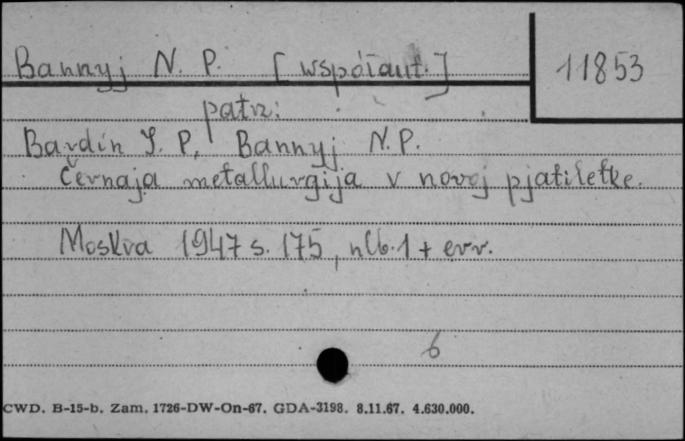 Bannyj N. P. [współaut.]
11853
patrz:
Bardin I. P., Bannyj N. P.
Černaja metallurgija v novoj pjatiletke.
Moskva 1947 s. 175, nlb. 1 + err.
6
CWD. B-15-b. Zam. 1726-DW-On-67. GDA-3198. 8.11.67. 4.630.000.